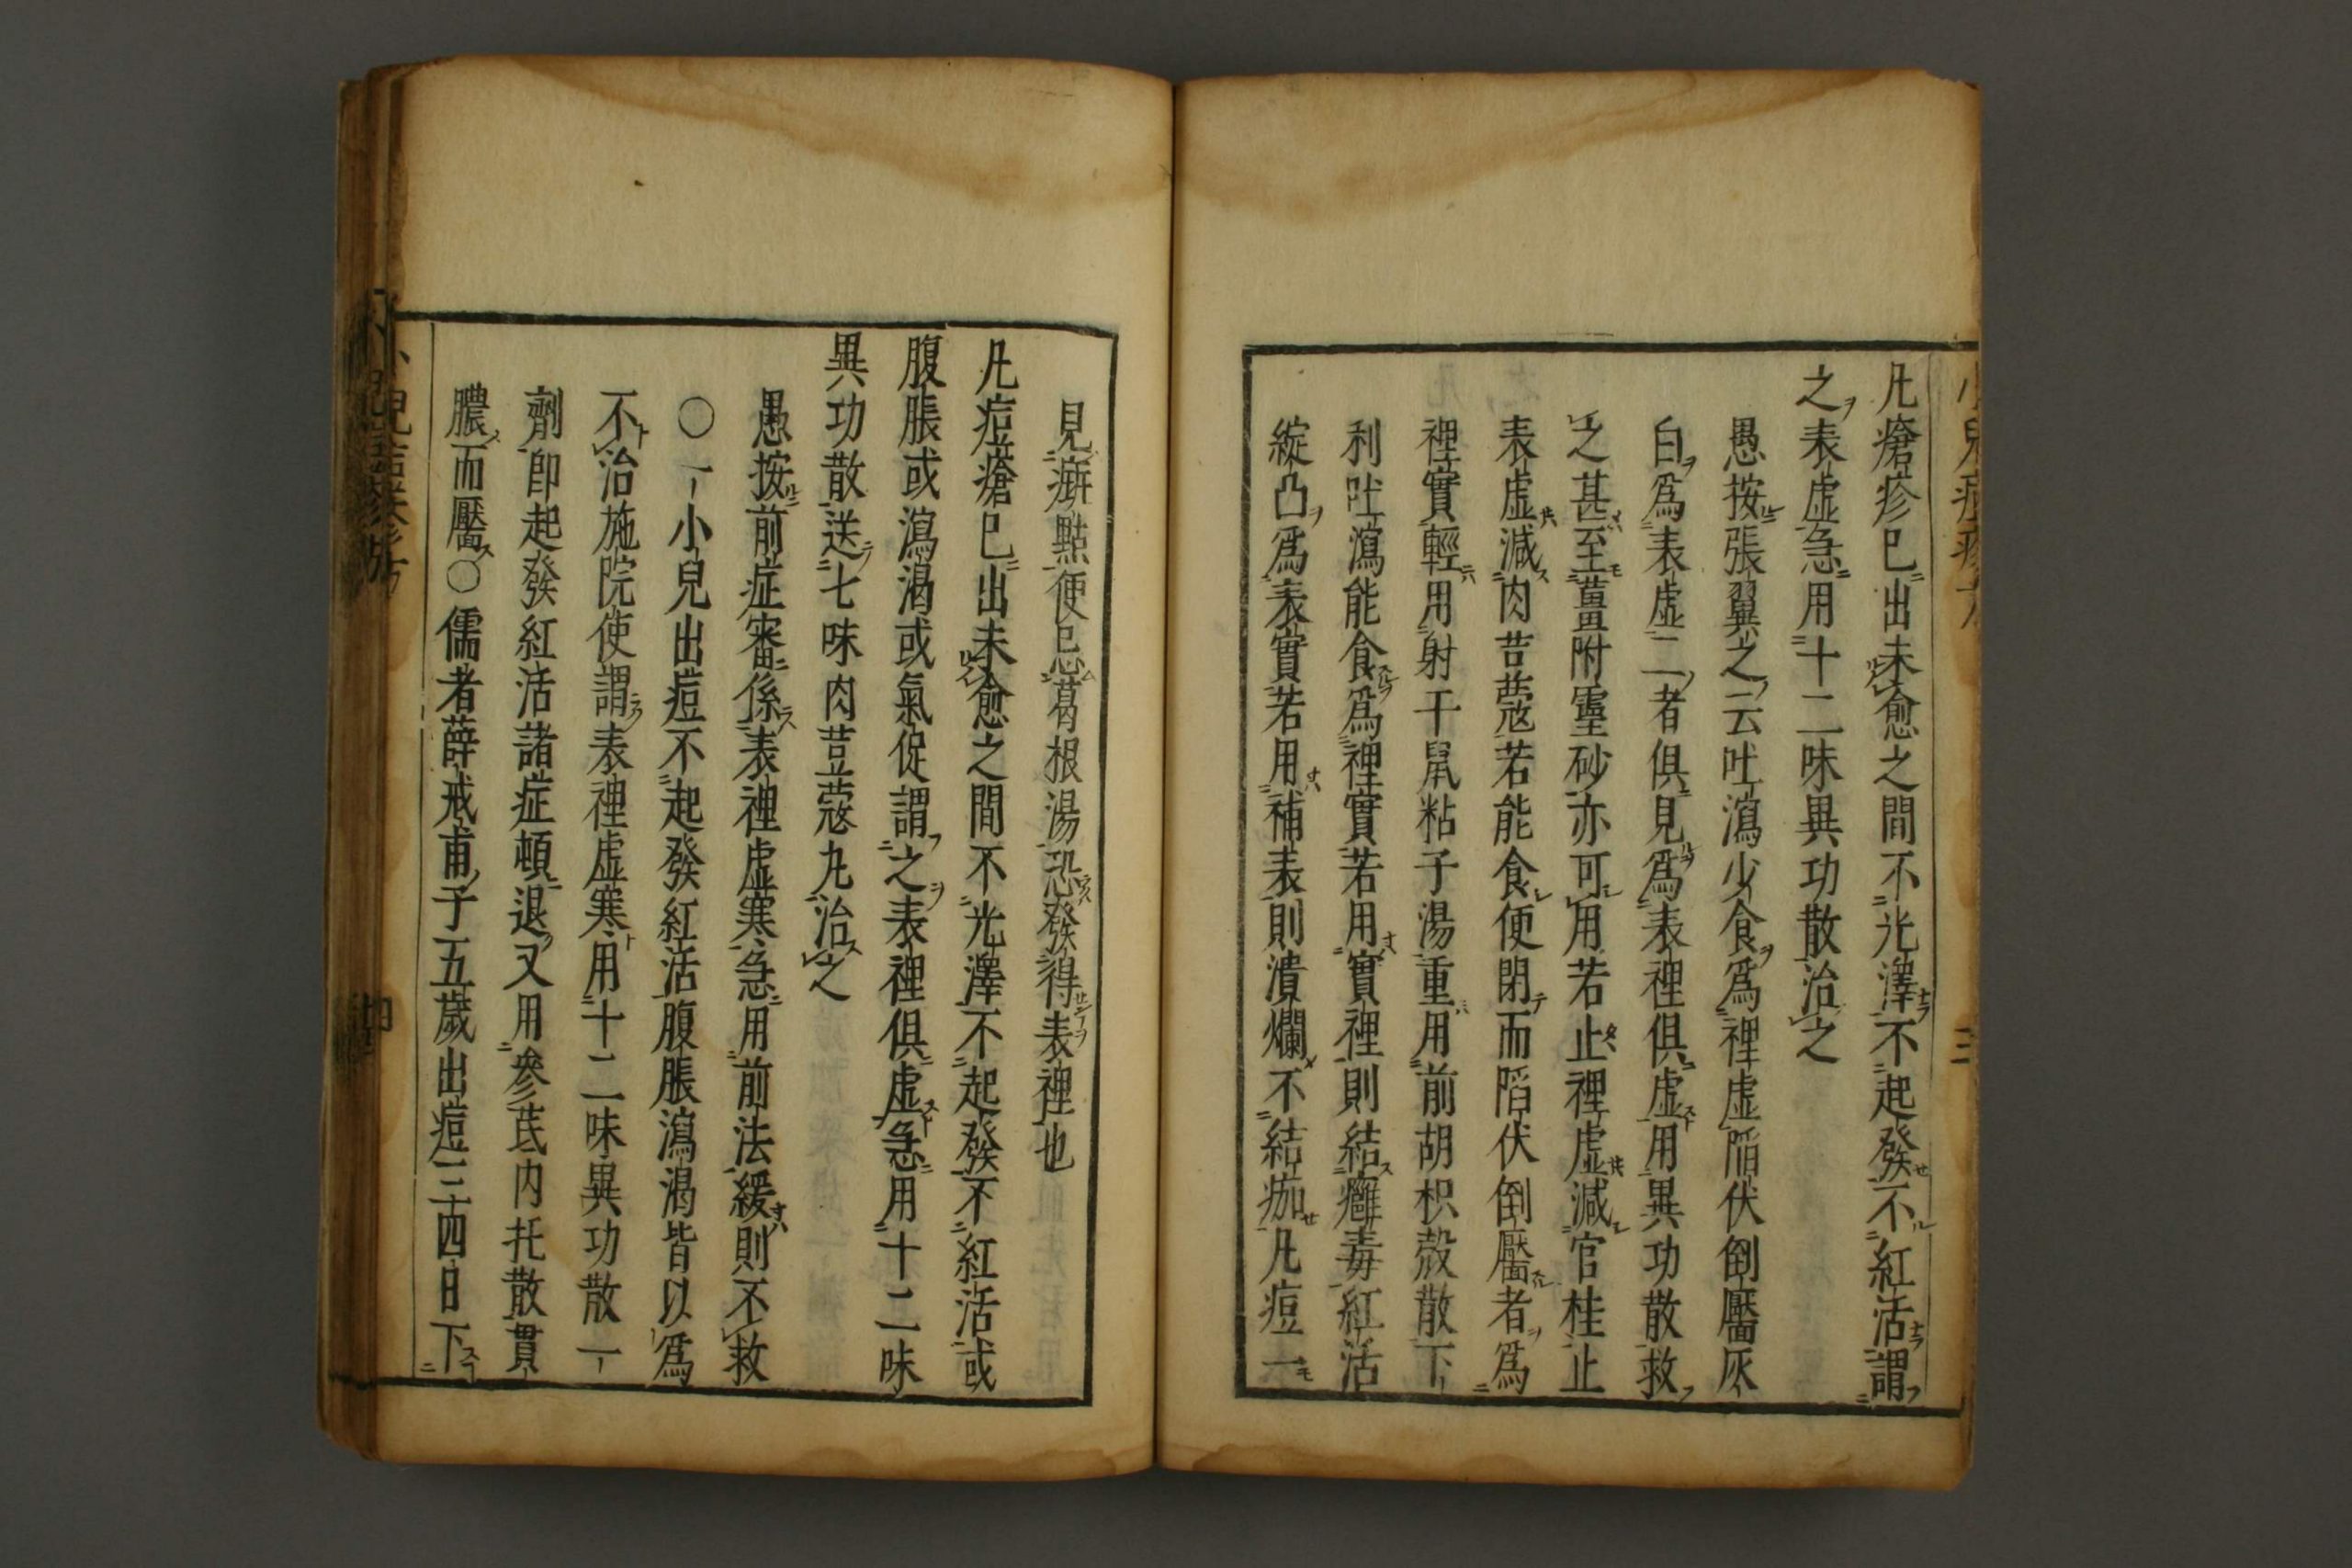 凡瘡疹已出未愈之間不光澤不起發不紅活謂
之表虚急用十二味異功散治之
愚按張翼之云吐瀉少食爲裡虚陷伏倒靨灰
白爲表虚二者俱見爲表裡俱虚用異功散救
之甚至薑附靈砂亦可用若止裡虚減官桂止
表虚減肉荳蔻若能食便閉而陷伏倒靨者爲
裡實輕用射干鼠粘子湯重用前胡枳殻散下
利吐瀉能食爲裡實若用實裡則結癰毒紅活
綻凸爲表實若用補表則潰爛不結痂凡痘一
見癍點便忌葛根湯恐發得表裡也
凡痘瘡已出未愈之間不光澤不起發不紅活或
腹脹或瀉渇或氣促謂之表裡俱虚急用十二味
異功散送七味肉荳蔻丸治之
愚按前症審係表裡虚寒急用前法緩則不救
〇一小兒出痘不起發紅活腹脹瀉渇皆以爲
不治施院使謂表裡虚寒用十二味異功散一
劑即起發紅活諸症頓退又用參芪内托散貫
膿而靨〇儒者薛戒甫子五歳出痘三四日下